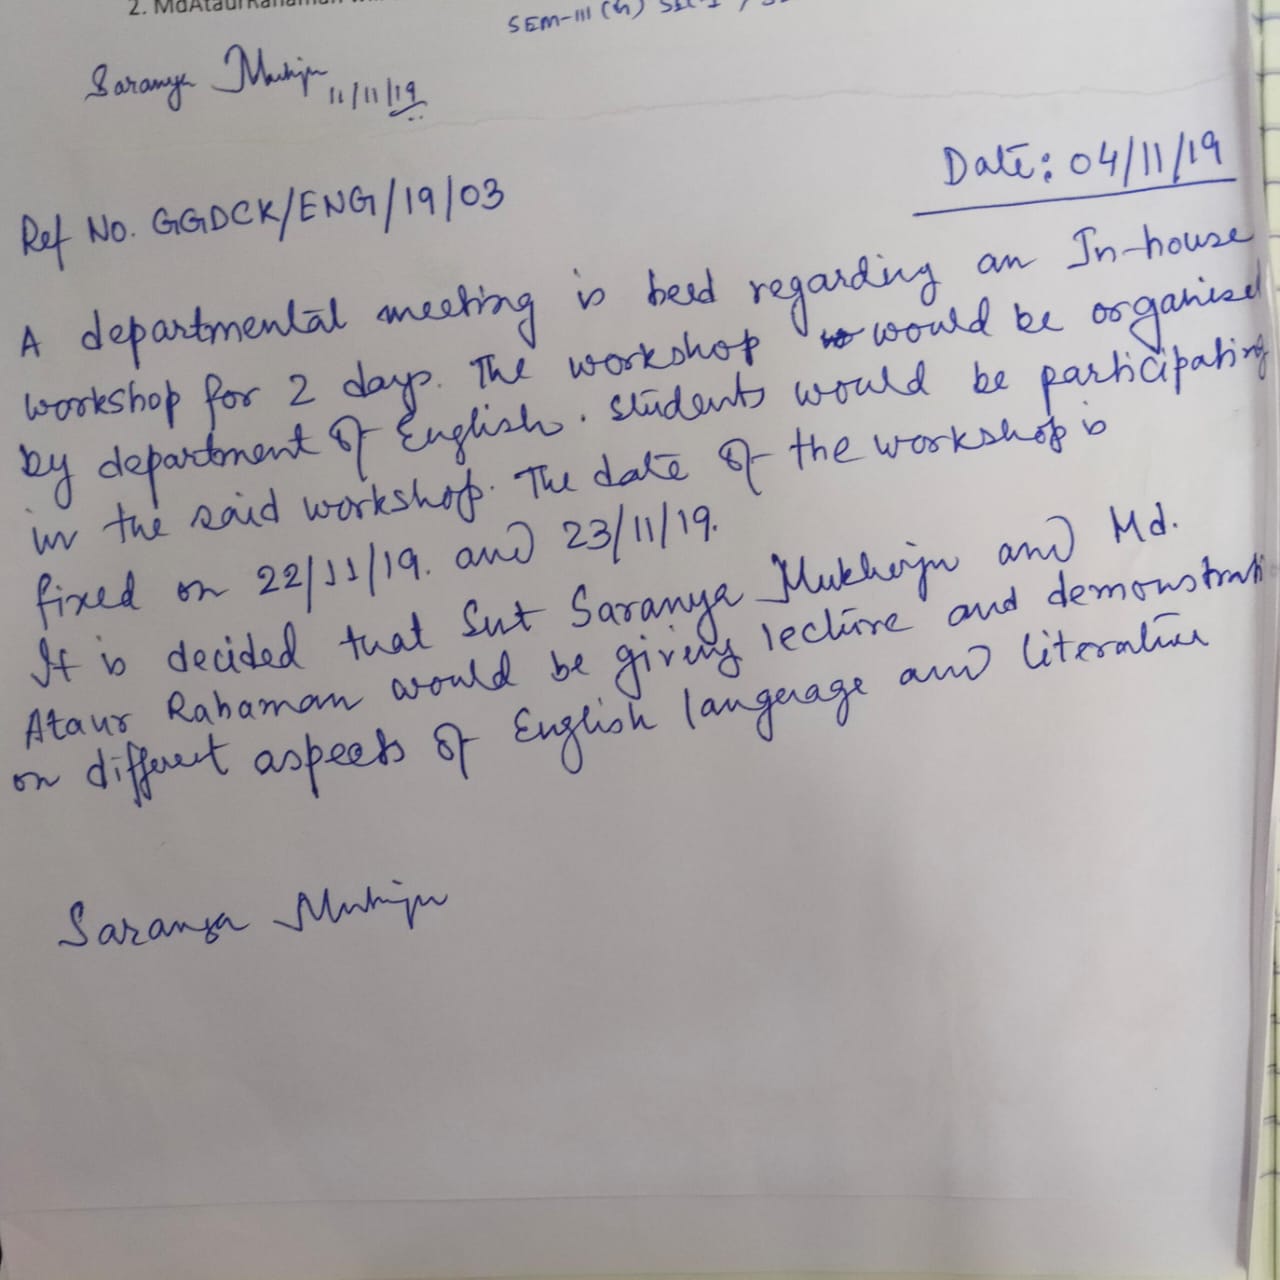 2. MdAtaurRahaman
SEM-III (H)
Saranya Mukherjee
11/11/19
Date: 04/11/19
Ref No. GGDCK/ENG/19/03
A departmental meeting is held regarding an In-house
workshop for 2 days. The workshop would be organised
by department of English. Students would be participating
in the said workshop. The date of the workshop is
fixed on 22/11/19. and 23/11/19.
It is decided that Smt Saranya Mukherjee and Md.
Ataur Rahaman would be giving lecture and demonstrati
on different aspects of English language and literature
Saranya Mukherjee